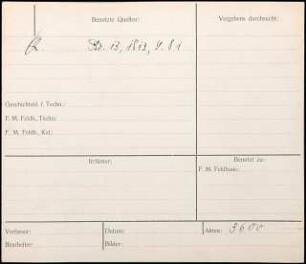 Benutzte Quellen:
Vergebens durchsucht:
Q. Bd. 13, 1813, S. 81
Geschichtsbl. f. Techn.:
F. M. Feldh., Techn.:
F. M. Feldh., Kul.:
Irrtümer:
Benutzt zu:
F. M. Feldhaus:
Verfasser:
Datum:
Akten: 3600
Bearbeiter:
Bilder: